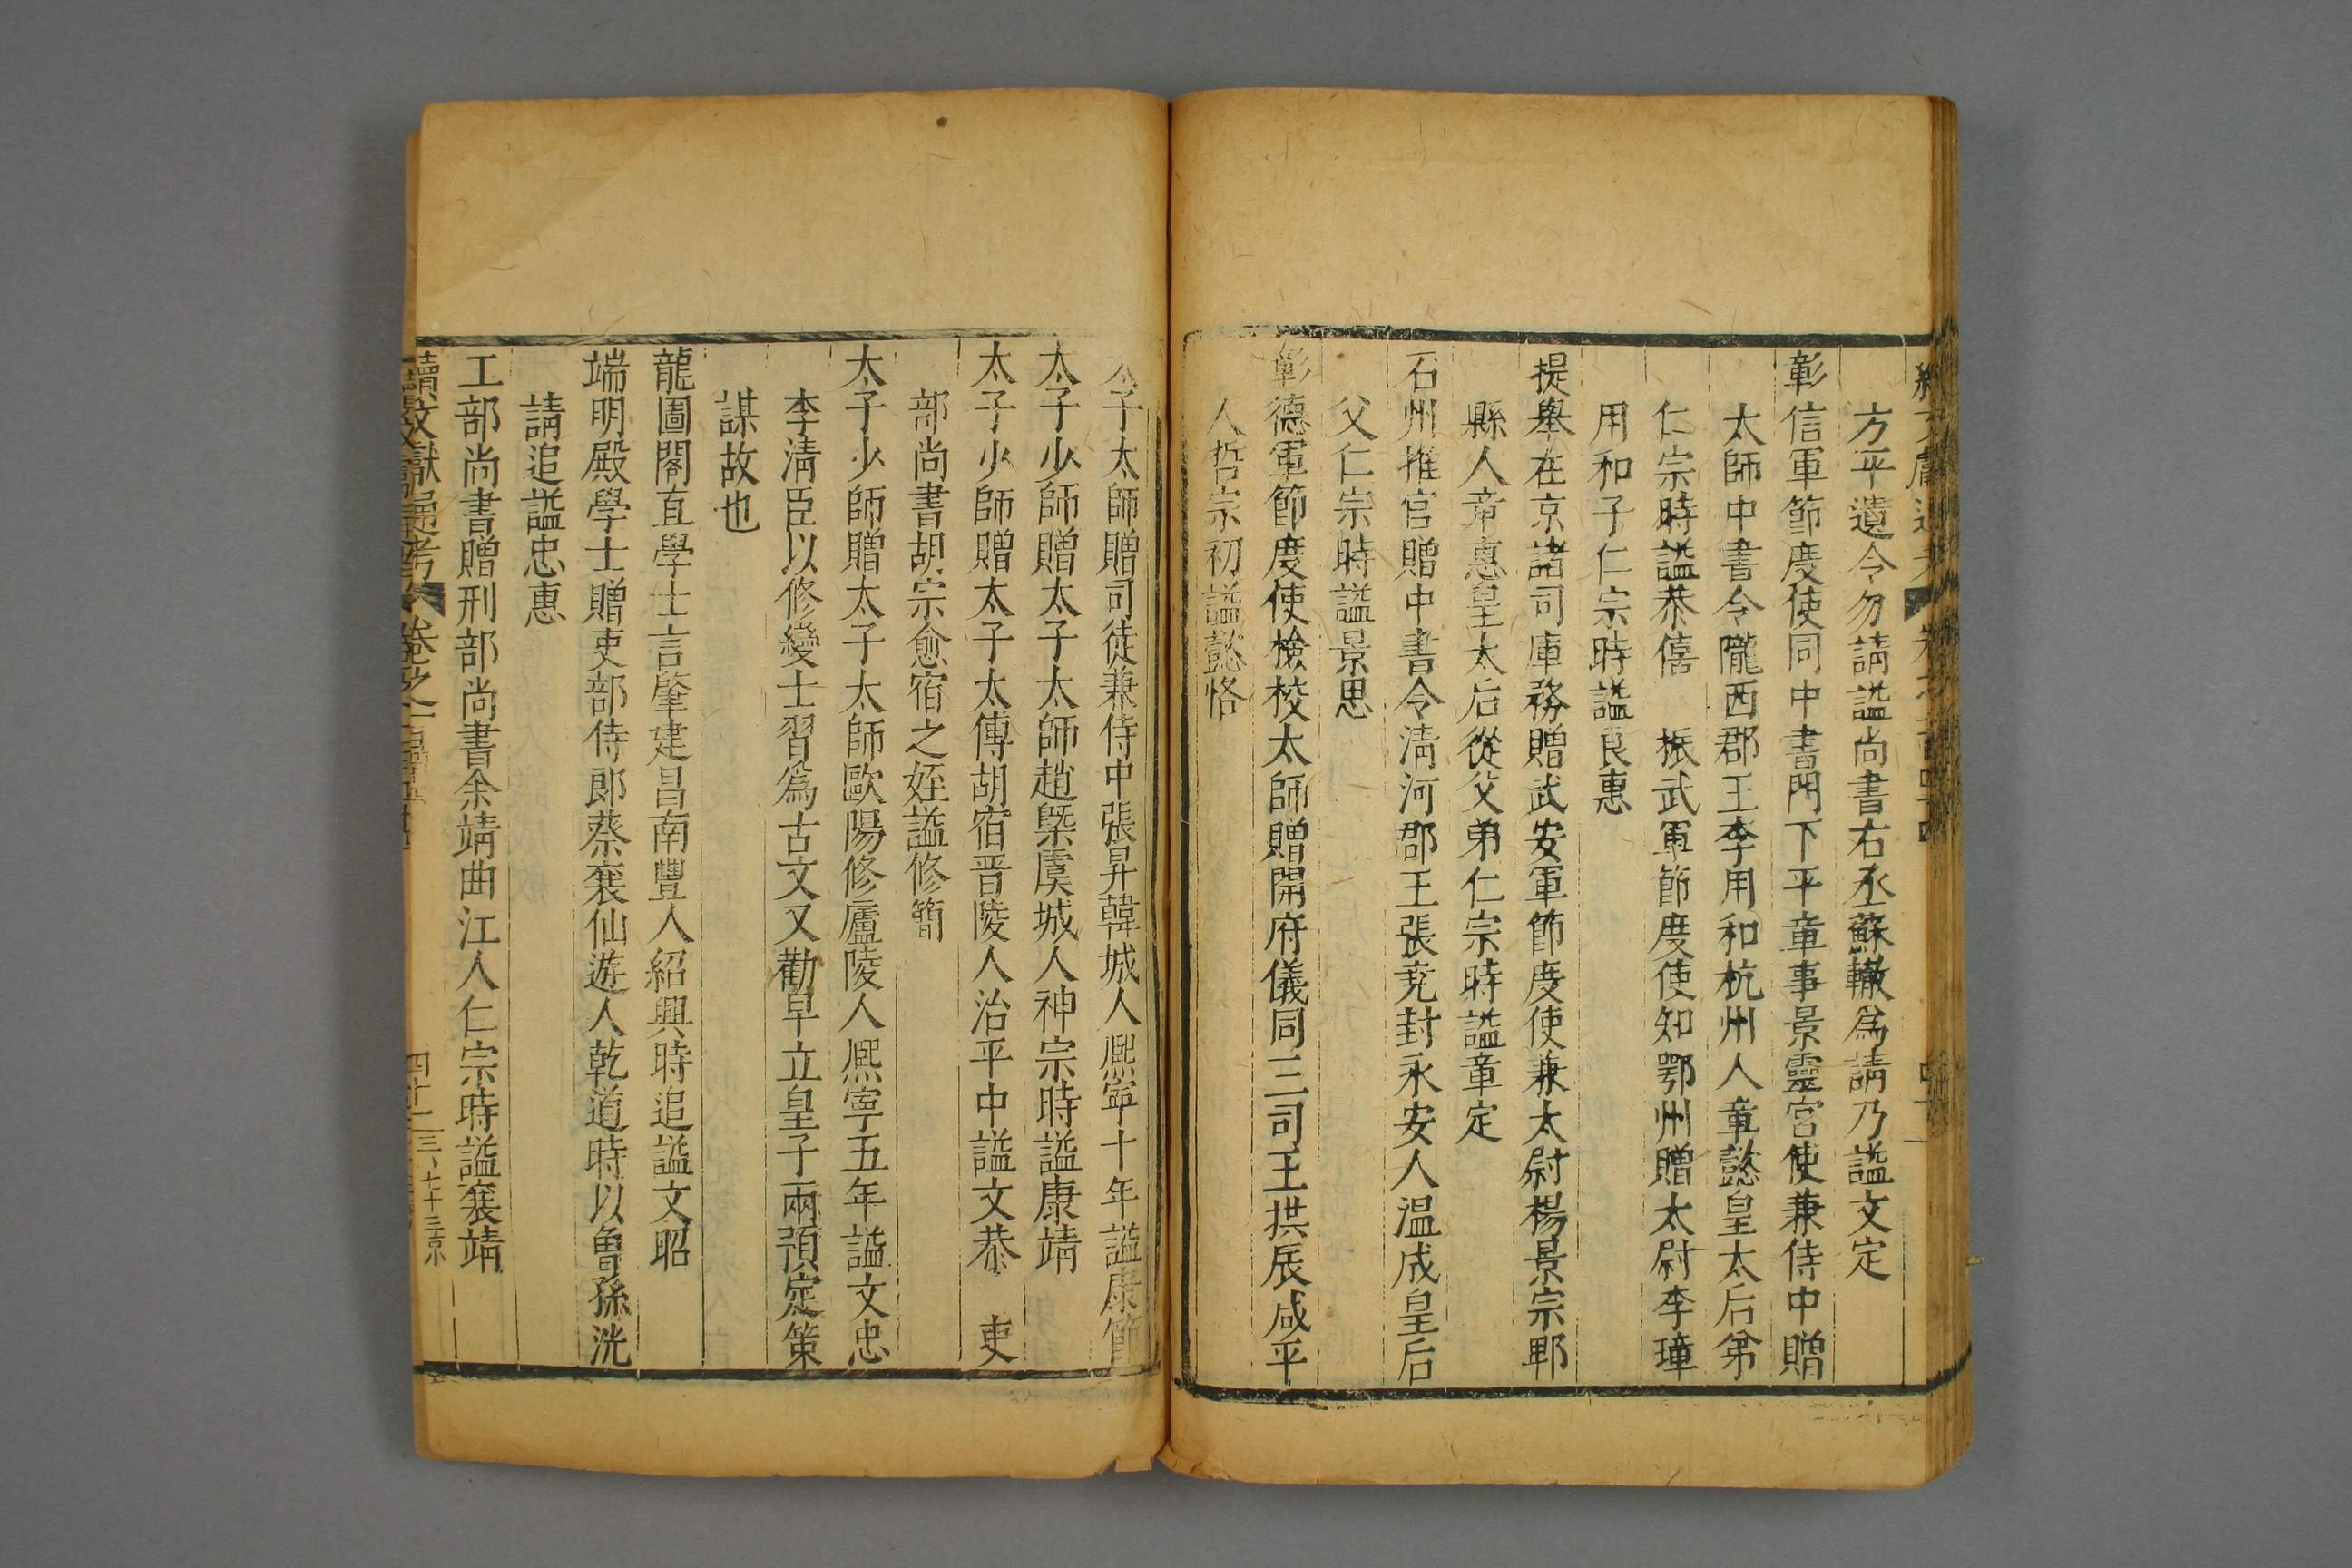 方平遺令勿請謚尚書右丞蘇轍爲請乃謚文定
彰信軍節度使同中書門下平章事景靈宮使兼侍中贈
太師中書令隴西郡王李用和杭州人章懿皇太后弟
仁宗時謚恭僖　振武軍節度使知鄂州贈太尉李璋
用和子仁宗時謚良惠
提舉在京諸司庫務贈武安軍節度使兼太尉楊景宗鄆
縣人章惠皇太后從父弟仁宗時謚章定
石州推官贈中書令清河郡王張堯封永安人温成皇后
父仁宗時謚景思
彰德軍節度使檢校太師贈開府儀同三司王拱辰咸平
人哲宗初謚懿恪
子太師贈司徒兼侍中張昇韓城人熈寧十年謚康節
太子少師贈太子太師趙槩虞城人神宗時謚康靖
太子少師贈太子太傅胡宿晋陵人治平中謚文恭　吏
部尚書胡宗愈宿之姪謚修簡
太子少師贈太子太師歐陽修廬陵人熈寧五年謚文忠
李清臣以修變士習爲古文又勸早立皇子兩預定策
謀故也
龍圖閣直學士言肇建昌南豐人紹興時追謚文昭
端明殿學士贈吏部侍郎蔡襄仙遊人乾道時以魯孫洸
請追謚忠惠
工部尚書贈刑部尚書余靖曲江人仁宗時謚襄靖
續文獻通考　卷之一百　四十二　三、七十三　京